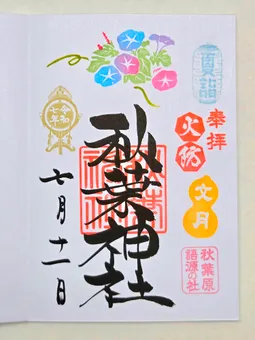 夏詣
奉拝
火防
文月
秋葉原
語源の社
秋葉神社
令和
七年
七月十一日